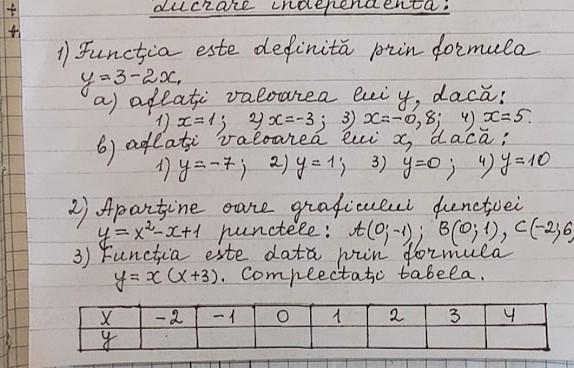 Lucrare independentă:
1) Funcția este definită prin formula
y=3-2x,
a) aflați valoarea lui y, dacă:
1) x=1; 2) x=-3; 3) x=-0,8; 4) x=5.
b) aflați valoarea lui x, dacă:
1) y=-7; 2) y=1; 3) y=0; 4) y=10
2) Aparține oare graficului funcției
y=x²-x+1 punctele: A(0;-1); B(0;1), C(-2;6
3) Funcția este dată prin formula
y=x(x+3). Complectați tabela.
x -2 -1 0 1 2 3 4
y